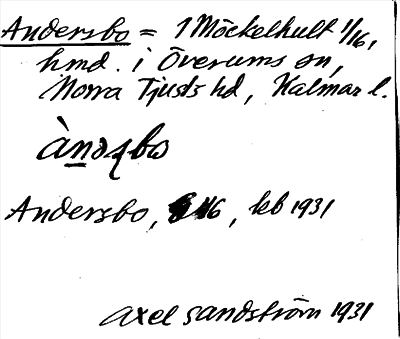 Andersbo = 1 Möckelhult 1/16,
hmd. i Överums sn,
Norra Tjusts hd, Kalmar l.
Andersbo, 1/16, kb 1931
Axel Sandström 1931